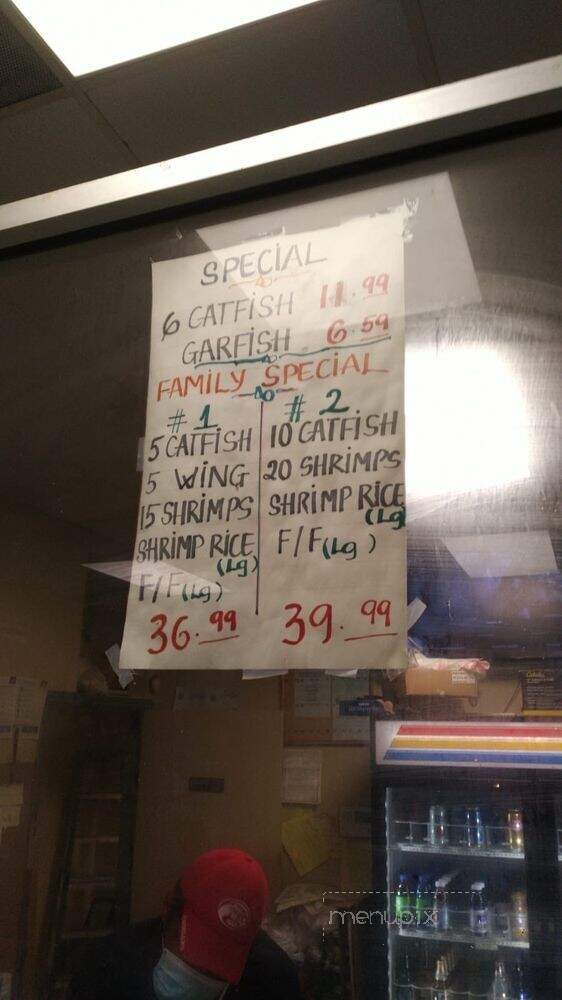 SPECIAL
6 CATFISH 11.99
GARFISH 6.59
FAMILY SPECIAL
# 1
5 CATFISH
5 WING
15 SHRIMPS
SHRIMP RICE
(Lg)
F/F (Lg)
36.99
# 2
10 CATFISH
20 SHRIMPS
SHRIMP RICE
(Lg)
F/F (Lg)
39.99
menupix